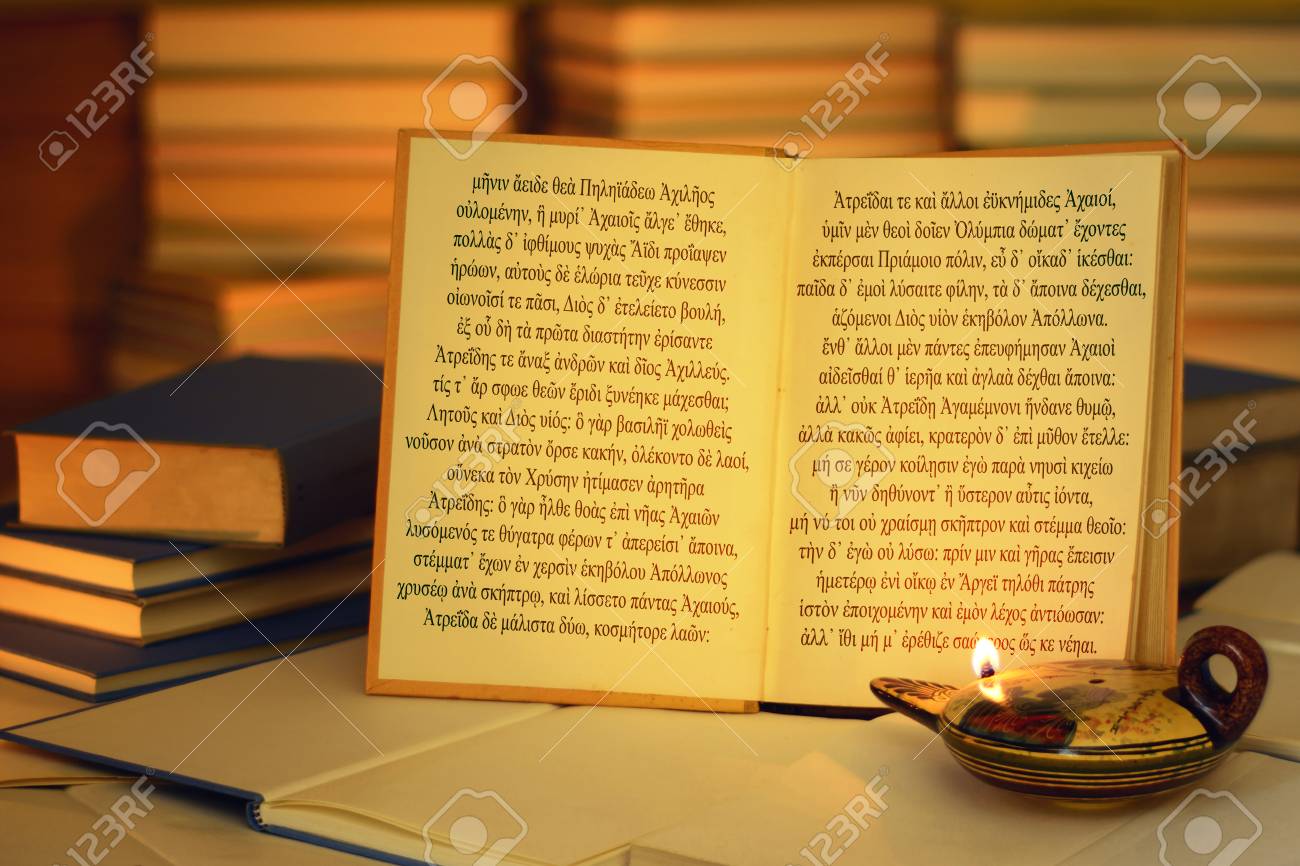 μῆνιν ἄειδε θεὰ Πηληϊάδεω Ἀχιλῆος
οὐλομένην, ἣ μυρί᾽ Ἀχαιοῖς ἄλγε᾽ ἔθηκε,
πολλὰς δ᾽ ἰφθίμους ψυχὰς Ἄϊδι προΐαψεν
ἡρώων, αὐτοὺς δὲ ἑλώρια τεῦχε κύνεσσιν
οἰωνοῖσί τε πᾶσι, Διὸς δ᾽ ἐτελείετο βουλή,
ἐξ οὗ δὴ τὰ πρῶτα διαστήτην ἐρίσαντε
Ἀτρεΐδης τε ἄναξ ἀνδρῶν καὶ δῖος Ἀχιλλεύς.
τίς τ᾽ ἄρ σφωε θεῶν ἔριδι ξυνέηκε μάχεσθαι;
Λητοῦς καὶ Διὸς υἱός: ὃ γὰρ βασιλῆϊ χολωθεὶς
νοῦσον ἀνὰ στρατὸν ὄρσε κακήν, ὀλέκοντο δὲ λαοί,
οὕνεκα τὸν Χρύσην ἠτίμασεν ἀρητῆρα
Ἀτρεΐδης: ὃ γὰρ ἦλθε θοὰς ἐπὶ νῆας Ἀχαιῶν
λυσόμενός τε θύγατρα φέρων τ᾽ ἀπερείσι᾽ ἄποινα,
στέμματ᾽ ἔχων ἐν χερσὶν ἑκηβόλου Ἀπόλλωνος
χρυσέῳ ἀνὰ σκήπτρῳ, καὶ λίσσετο πάντας Ἀχαιούς,
Ἀτρεΐδα δὲ μάλιστα δύω, κοσμήτορε λαῶν:
Ἀτρεΐδαι τε καὶ ἄλλοι ἐϋκνήμιδες Ἀχαιοί,
ὑμῖν μὲν θεοὶ δοῖεν Ὀλύμπια δώματ᾽ ἔχοντες
ἐκπέρσαι Πριάμοιο πόλιν, εὖ δ᾽ οἴκαδ᾽ ἱκέσθαι:
παῖδα δ᾽ ἐμοὶ λύσαιτε φίλην, τὰ δ᾽ ἄποινα δέχεσθαι,
ἁζόμενοι Διὸς υἱὸν ἑκηβόλον Ἀπόλλωνα.
ἔνθ᾽ ἄλλοι μὲν πάντες ἐπευφήμησαν Ἀχαιοὶ
αἰδεῖσθαί θ᾽ ἱερῆα καὶ ἀγλαὰ δέχθαι ἄποινα:
ἀλλ᾽ οὐκ Ἀτρεΐδῃ Ἀγαμέμνονι ἥνδανε θυμῷ,
ἀλλὰ κακῶς ἀφίει, κρατερὸν δ᾽ ἐπὶ μῦθον ἔτελλε:
μή σε γέρον κοίλῃσιν ἐγὼ παρὰ νηυσὶ κιχείω
ἢ νῦν δηθύνοντ᾽ ἢ ὕστερον αὖτις ἰόντα,
μή νύ τοι οὐ χραίσμῃ σκῆπτρον καὶ στέμμα θεοῖο:
τὴν δ᾽ ἐγὼ οὐ λύσω: πρίν μιν καὶ γῆρας ἔπεισιν
ἡμετέρῳ ἐνὶ οἴκῳ ἐν Ἄργεϊ τηλόθι πάτρης
ἱστὸν ἐποιχομένην καὶ ἐμὸν λέχος ἀντιόωσαν:
ἀλλ᾽ ἴθι μή μ᾽ ἐρέθιζε ὥς κε νέηαι.
123RF
123RF
123RF
123RF
123RF
123RF
123RF